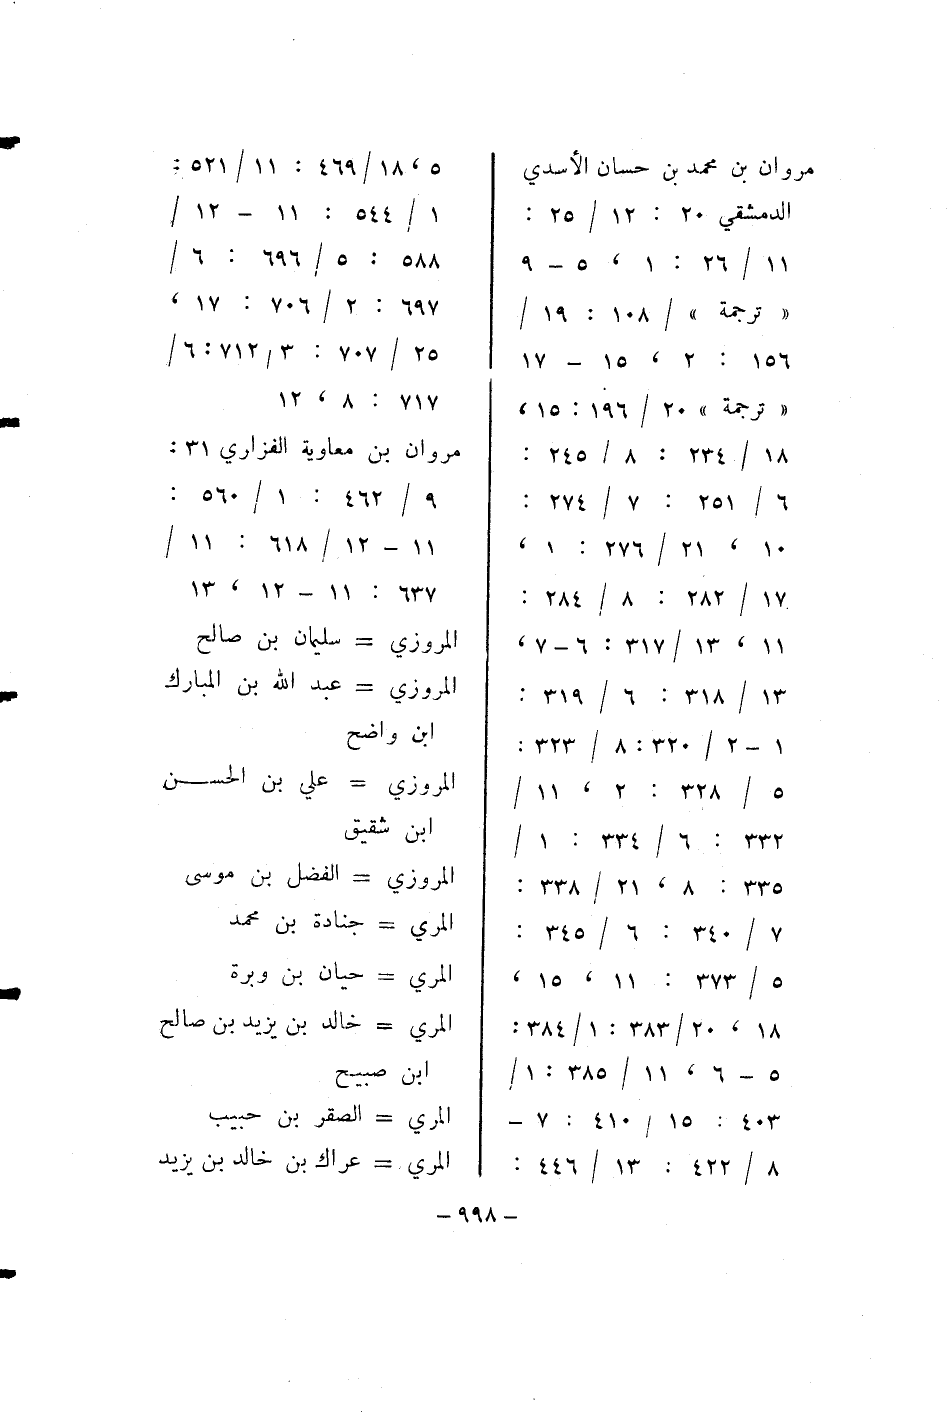 مروان بن محمد بن حسان الأسدي
الدمشقي ٢٠ : ١٢ / ٢٥ :
١١ / ٢٦ : ١ ، ٥ – ٩
« ترجمة » / ١٠٨ : ١٩ /
١٥٦ : ٢ ، ١٥ – ١٧
« ترجمة » ٢٠ / ١٩٦ : ١٥ ،
١٨ / ٢٣٤ : ٨ / ٢٤٥ :
٦ / ٢٥١ : ٧ / ٢٧٤ :
١٠ ، ٢١ / ٢٧٦ : ١ ،
١٧ / ٢٨٢ : ٨ / ٢٨٤ :
١١ ، ١٣ / ٣١٧ : ٦ – ٧ ،
١٣ / ٣١٨ : ٦ / ٣١٩ :
١ – ٢ / ٣٢٠ : ٨ / ٣٢٣ :
٥ / ٣٢٨ : ٢ ، ١١ /
٣٣٢ : ٦ / ٣٣٤ : ١ /
٣٣٥ : ٨ ، ٢١ / ٣٣٨ :
٧ / ٣٤٠ : ٦ / ٣٤٥ :
٥ / ٣٧٣ : ١١ ، ١٥ ،
١٨ ، ٢٠ / ٣٨٣ : ١ / ٣٨٤ :
٥ – ٦ ، ١١ / ٣٨٥ : ١ /
٤٠٣ : ١٥ / ٤١٠ : ٧ –
٨ / ٤٢٢ : ١٣ / ٤٤٦ :
٥ ، ١٨ / ٤٦٩ : ١١ / ٥٢١ :
١ / ٥٤٤ : ١١ – ١٢ /
٥٨٨ : ٥ / ٦٩٦ : ٦ /
٦٩٧ : ٢ / ٧٠٦ : ١٧ ،
٢٥ / ٧٠٧ : ٣ / ٧١٢ : ٦ /
٧١٧ : ٨ ، ١٢
مروان بن معاوية الفزاري ٣١ :
٩ / ٤٦٢ : ١ / ٥٦٠ :
١١ – ١٢ / ٦١٨ : ١١ /
٦٣٧ : ١١ – ١٢ ، ١٣
المروزي = سليمان بن صالح
المروزي = عبد الله بن المبارك
ابن واضح
المروزي = علي بن الحسن
ابن شقيق
المروزي = الفضل بن موسى
المري = جنادة بن محمد
المري = حيان بن وبرة
المري = خالد بن يزيد بن صالح
ابن صبيح
المري = الصقر بن حبيب
المري = عراك بن خالد بن يزيد
– ٩٩٨ –